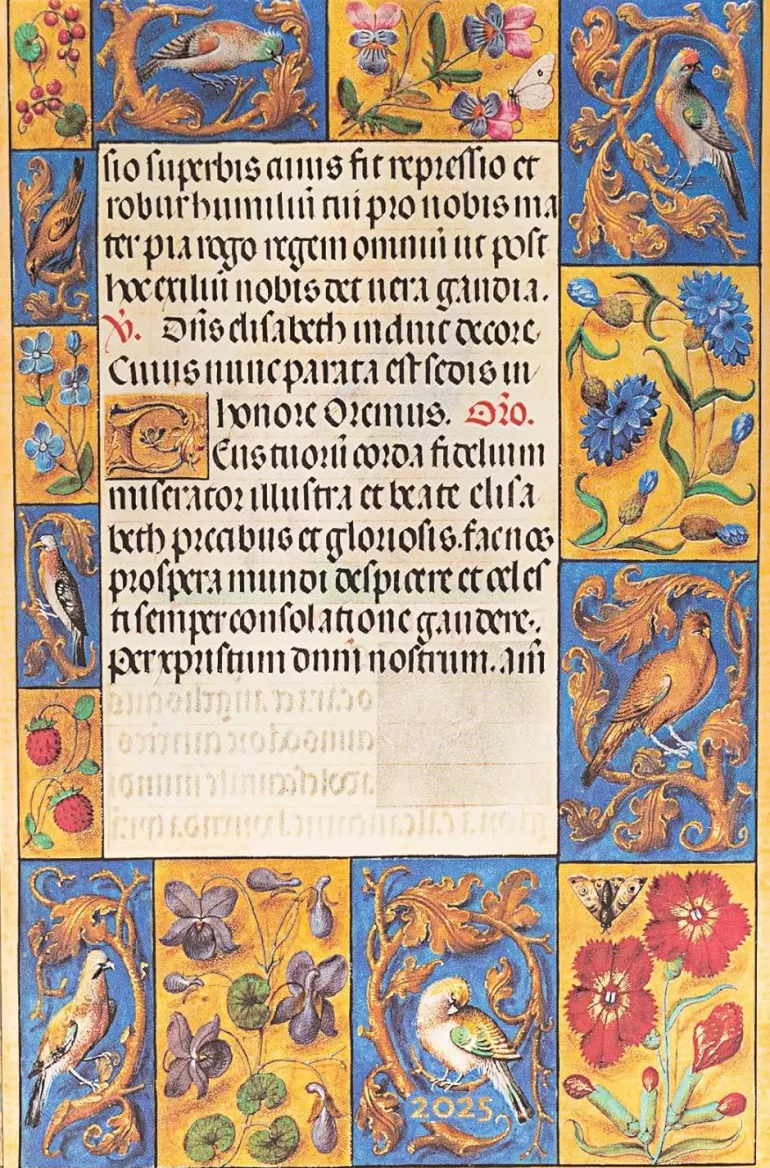 sio superbis cuius fit repressio et
robur humiliū tui pro nobis ma
ter pia rogo regem omniū ut post
hoc exiliū nobis det uera gaudia.
V. Dn̄s elisabeth induit decore.
Cuius nunc parata est sedis in
honore Oremus. Oro᷑.
Deus tuorū corda fidelium
miserator illustra et beate elisa
beth precibus et gloriosis. fac nos
prospera mundi despicere et celes
ti semper consolatione gaudere.
Per xpristum dnm̄ nostrum. am̄
2025